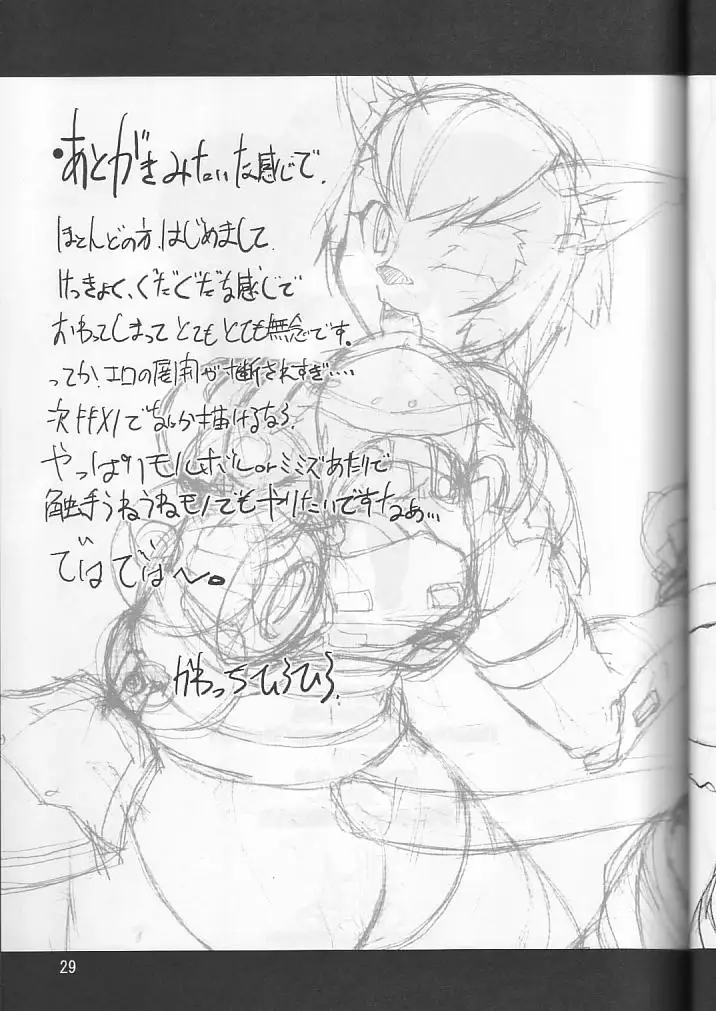 ・あとがきみたいな感じで.
ほとんどの方、はじめまして.
けっきょく、ぐだぐだな感じで
おわってしまってとてもとても無念です。
ってか、エロの展開が寸断されすぎ・・・・
次FFXIでなんか描けるなら、
やっぱりモルボルorミミズあたりで
触手うねうねモノでもやりたいですなぁ・・・
ではでは〜。
がわっちひろひろ.
29